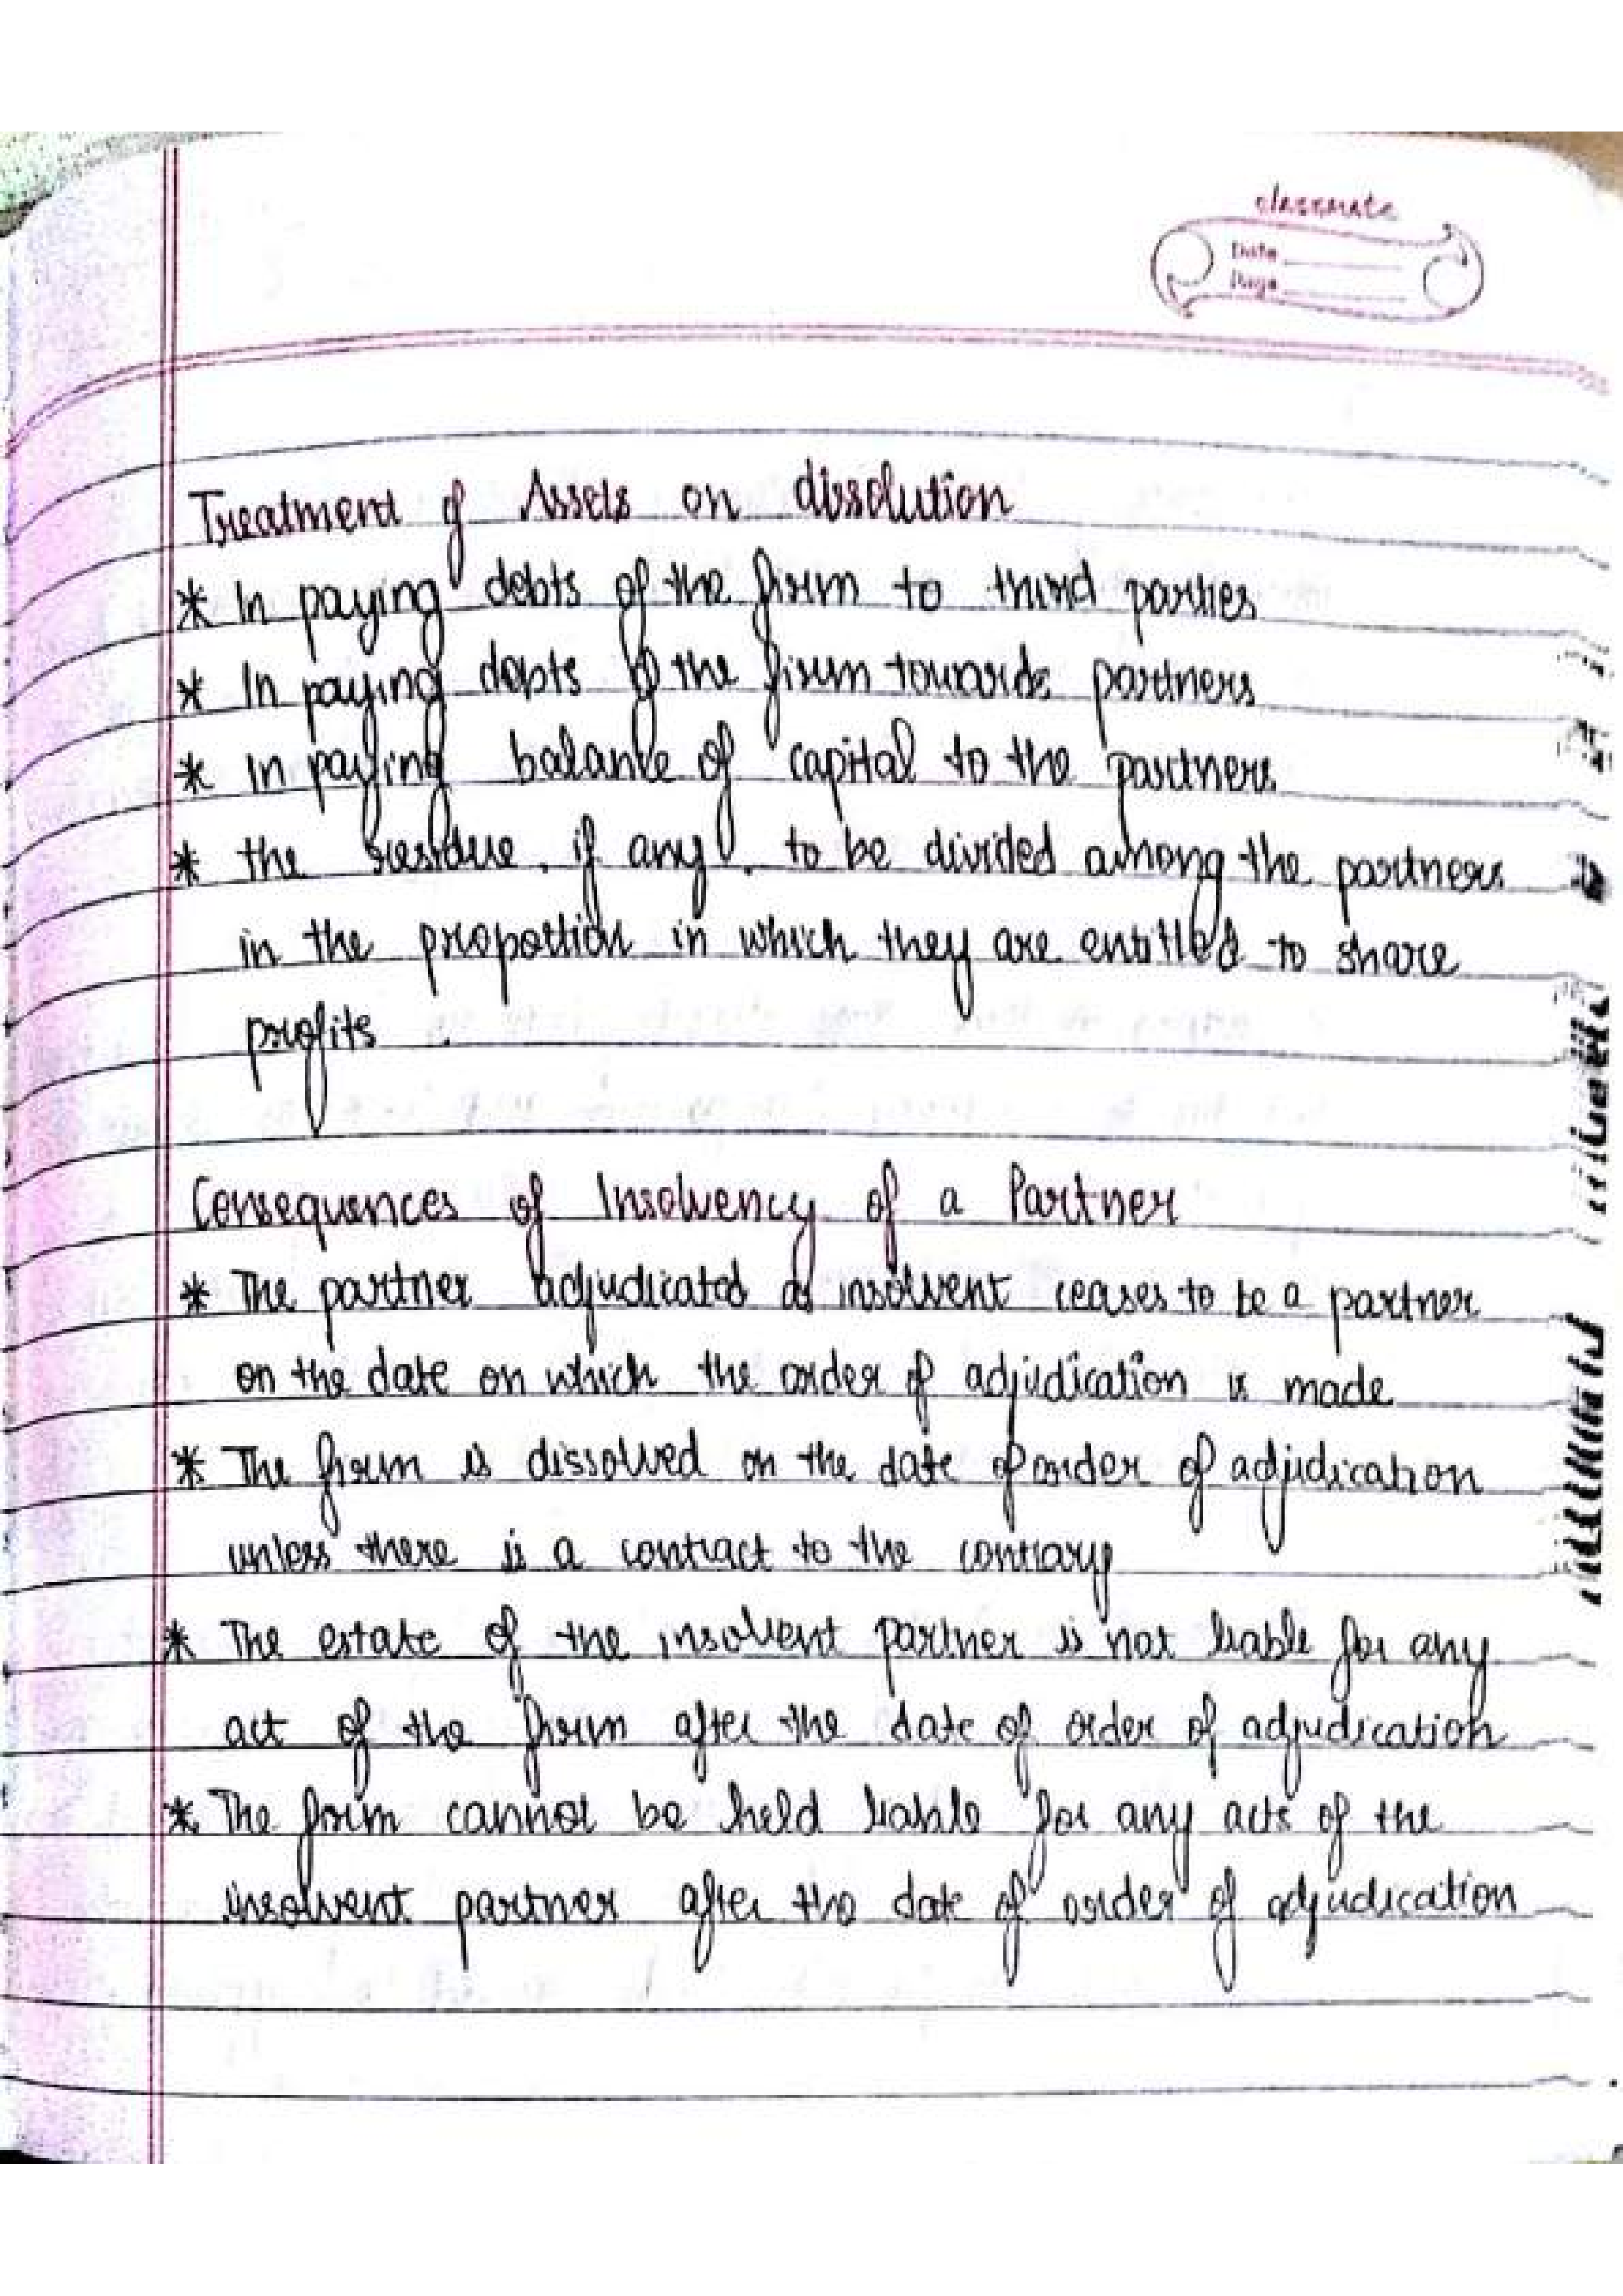 classmate
Date
Page
Treatment of Assets on dissolution
* In paying debts of the firm to third parties
* In paying debts of the firm towards partners
* In paying balance of capital to the partners
* the residue, if any, to be divided among the partners
in the proportion in which they are entitled to share
profits.
Consequences of Insolvency of a Partner
* The partner adjudicated as insolvent ceases to be a partner
on the date on which the order of adjudication is made
* The firm is dissolved on the date of order of adjudication
unless there is a contract to the contrary
* The estate of the insolvent partner is not liable for any
act of the firm after the date of order of adjudication
* The firm cannot be held liable for any acts of the
insolvent partner after the date of order of adjudication